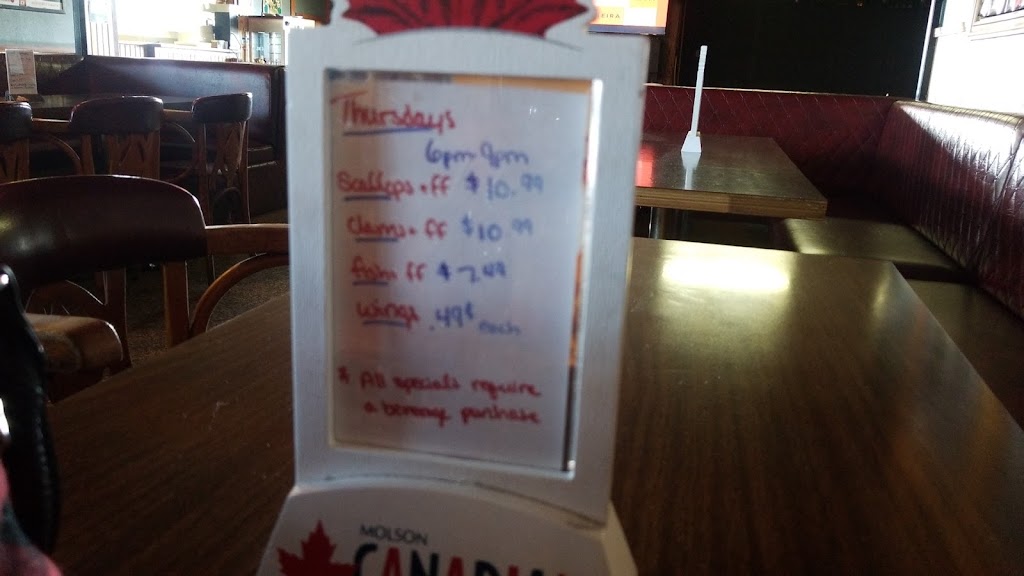 Thursdays
6pm-9pm
Scallops + ff $10.99
Clams + ff $10.99
ff $7.49
wings .49¢ each
* All specials require
a beverage purchase
MOLSON
CANADIAN